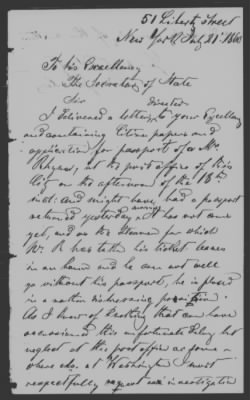 51 Liberty Street
New York July 21st 186
To his Excellency
The Secretary of State
Sir
directed
I delivered a letter to your Excellency
and containing Citizen papers and
application for passport of a Mr
at the post office of this
City on the afternoon of the 18th
inst. and might have had a passport
returned yesterday morning. It has not come
yet, and as the Steamer for which
Mr R has taken his ticket leaves
in an hour and he can not well
go without his passport, he is placed
in a rather distressing position.
As I know of nothing that can have
occasioned this unfortunate delay but
neglect at the post office or some-
where else at Washington I must
respectfully request an investigation